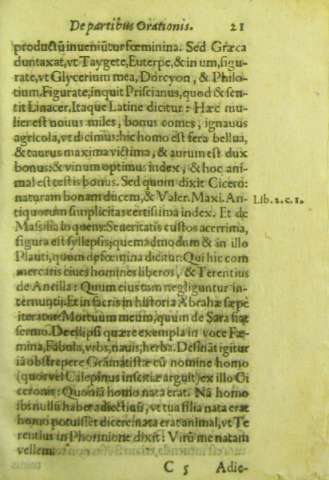 De partibus Orationis. 21
productũ inveniũtur fœminina. Sed Græca
duntaxat, vt Taygete, Euterpe, & in um, figu-
rate, vt Glycerium mea, Dorcyon, & Philo-
tium. Figurate, inquit Priscianus, quod & sen-
tit Linacer. Itaque Latine dicitur: Hæc mu-
lier est nouus miles, bonus comes, ignauus
agricola, vt dicimus: hic homo est fera bellua,
& taurus maxima victima, & aurum est dux
bonus: & vinum optimus index, & hoc ani-
mal est testis bonus. Sed quum dixit Cicero:
naturam bonam ducem, & Valer. Maxi. An-
Lib. 2. c. 1.
tiquorum simplicitas certissima index. Et de
Massilia loquens: Seueritatis custos acerrima,
figura est syllepsis, quemadmodum & in illo
Plauti, quum de fœmina dicitur: Qui hic com
mercatis ciues homines liberos, & Terentius
de Ancilla: Quum eius tam negliguntur in-
ternuntij. Et in sacris in historia Abrahæ sæpè
iteratur: Mortuum meum, quum de Sara fiat
sermo. De ellipsi quære exempla in voce Fæ-
mina, Fabula, vrbs, nauis, herba. Desinãt igitur
iã obstrepere Grãmatistæ cũ nomine homo
(quos vel Calepinus inscitiæ arguit) ex illo Ci
ceronis: Quoniã homo nata erat. Nã homo
ibi nullũ habet adiectiuũ, vt tua filia nata erat
homo potuisset dicere nata erat animal, vt Te
rentius in Phormione dixit: Virũ me natam
vellem.
C 5 Adie-